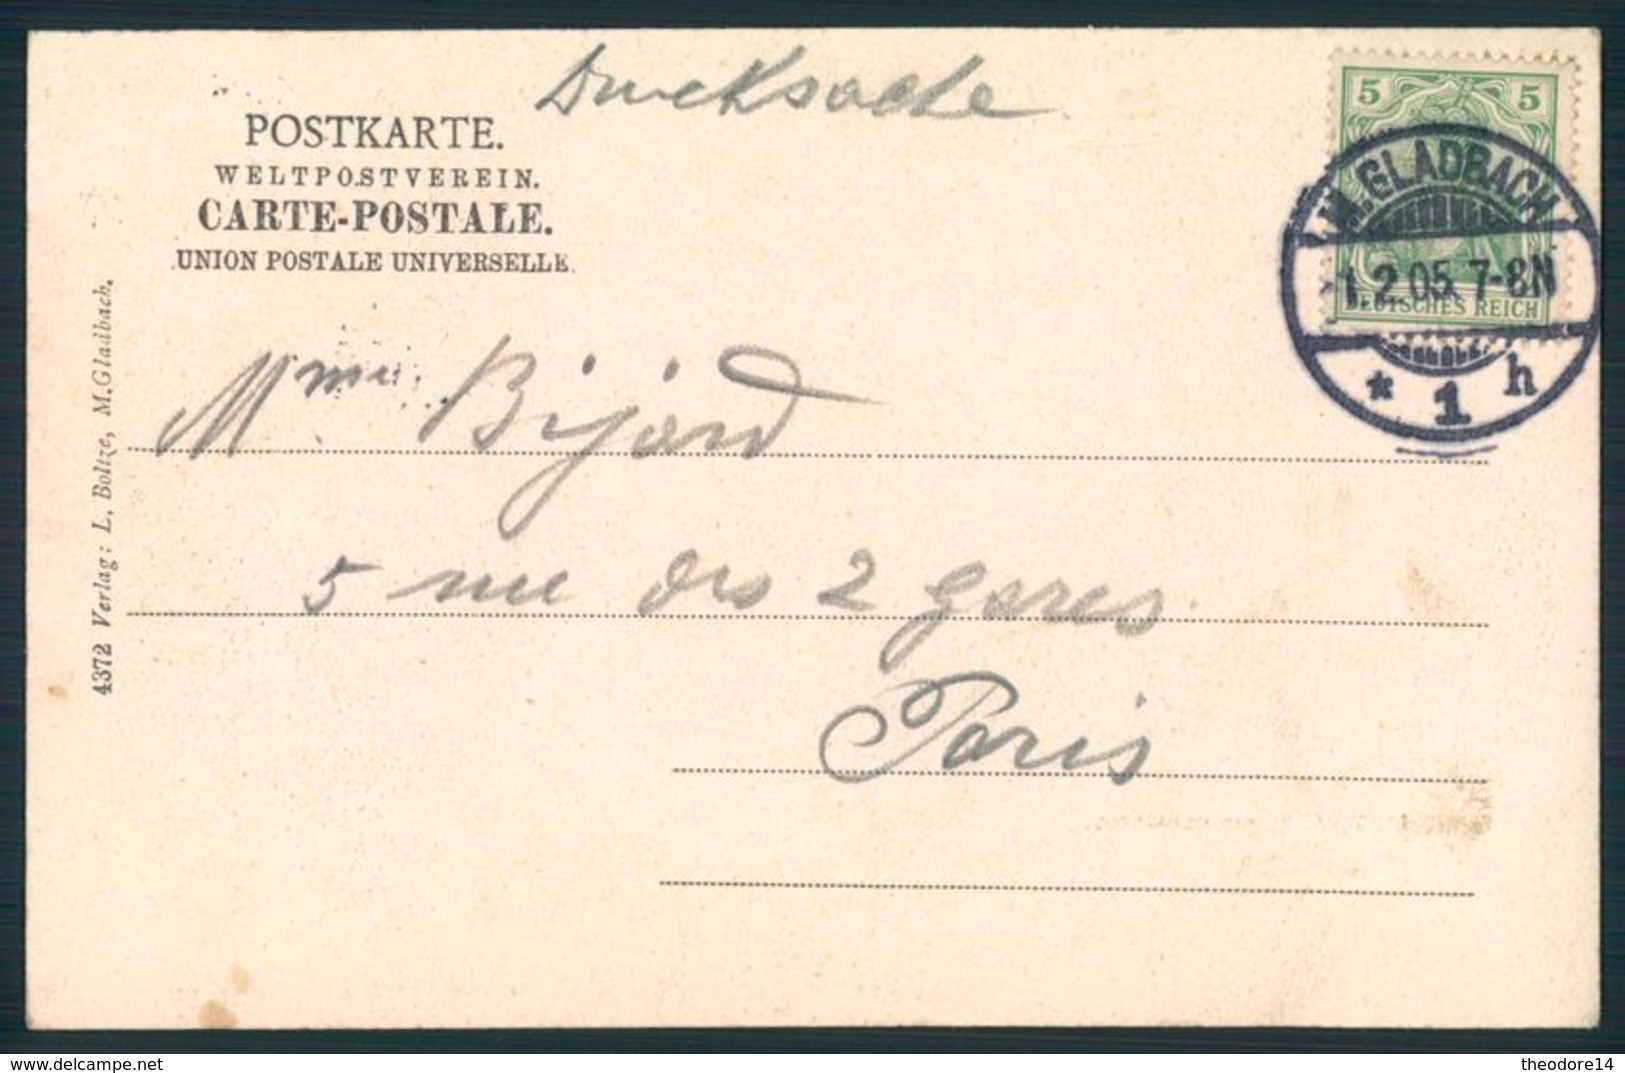 Drucksache
POSTKARTE.
WELTPOSTVEREIN.
CARTE-POSTALE.
UNION POSTALE UNIVERSELLE.
5 5
DEUTSCHES REICH
M.GLADBACH
1.2.05.7-8N
* 1 h
Mme Bijard
5 rue des 2 gares
Paris
4372 Verlag: L. Boltze, M.Gladbach.
delcampe.net
theodore14